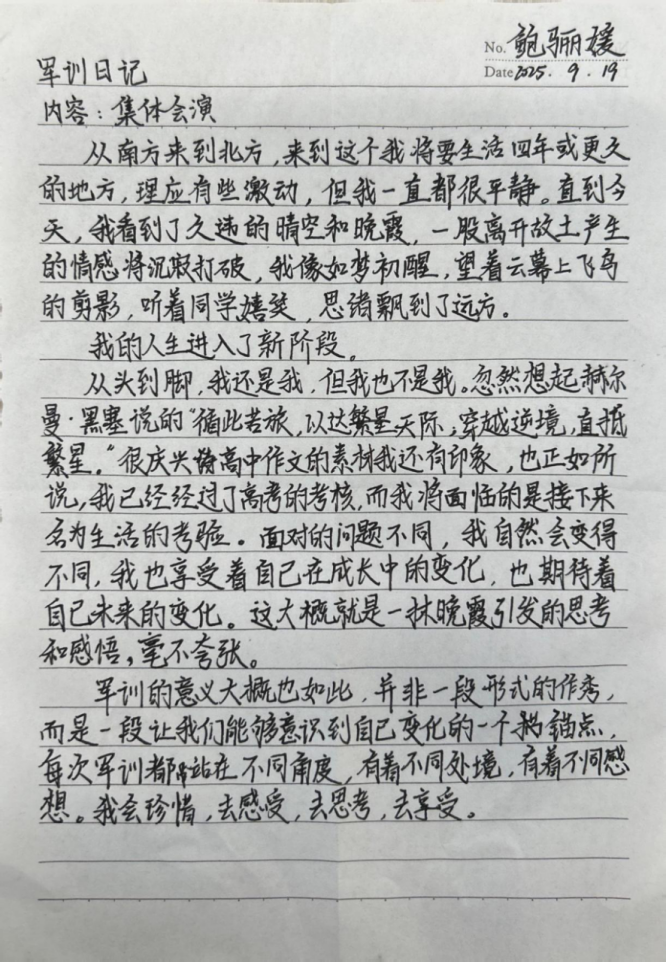 No. 鲍骊媛
军训日记
Date 2025. 9. 19
内容：集体会演
从南方来到北方，来到这个我将要生活四年或更久
的地方，理应有些激动，但我一直都很平静。直到今
天，我看到了久违的晴空和晚霞，一股离开故土产生
的情感将沉寂打破，我像如梦初醒，望着云幕上飞鸟
的剪影，听着同学嬉笑，思绪飘到了远方。
我的人生进入了新阶段。
从头到脚，我还是我，但我也不是我。忽然想起赫尔
曼·黑塞说的“循此苦旅，以达繁星天际；穿越逆境，直抵
繁星。”很庆兴高中作文的素材我还有印象，也正如所
说，我已经经过了高考的考核，而我将面临的是接下来
名为生活的考验。面对的问题不同，我自然会变得
不同，我也享受着自己在成长中的变化，也期待着
自己未来的变化。这大概就是一抹晚霞引发的思考
和感悟，毫不夸张。
军训的意义大概也如此，并非一段形式的作秀，
而是一段让我们能够意识到自己变化的一个锚点，
每次军训都站在不同角度，有着不同处境，有着不同感
想。我会珍惜，去感受，去思考，去享受。